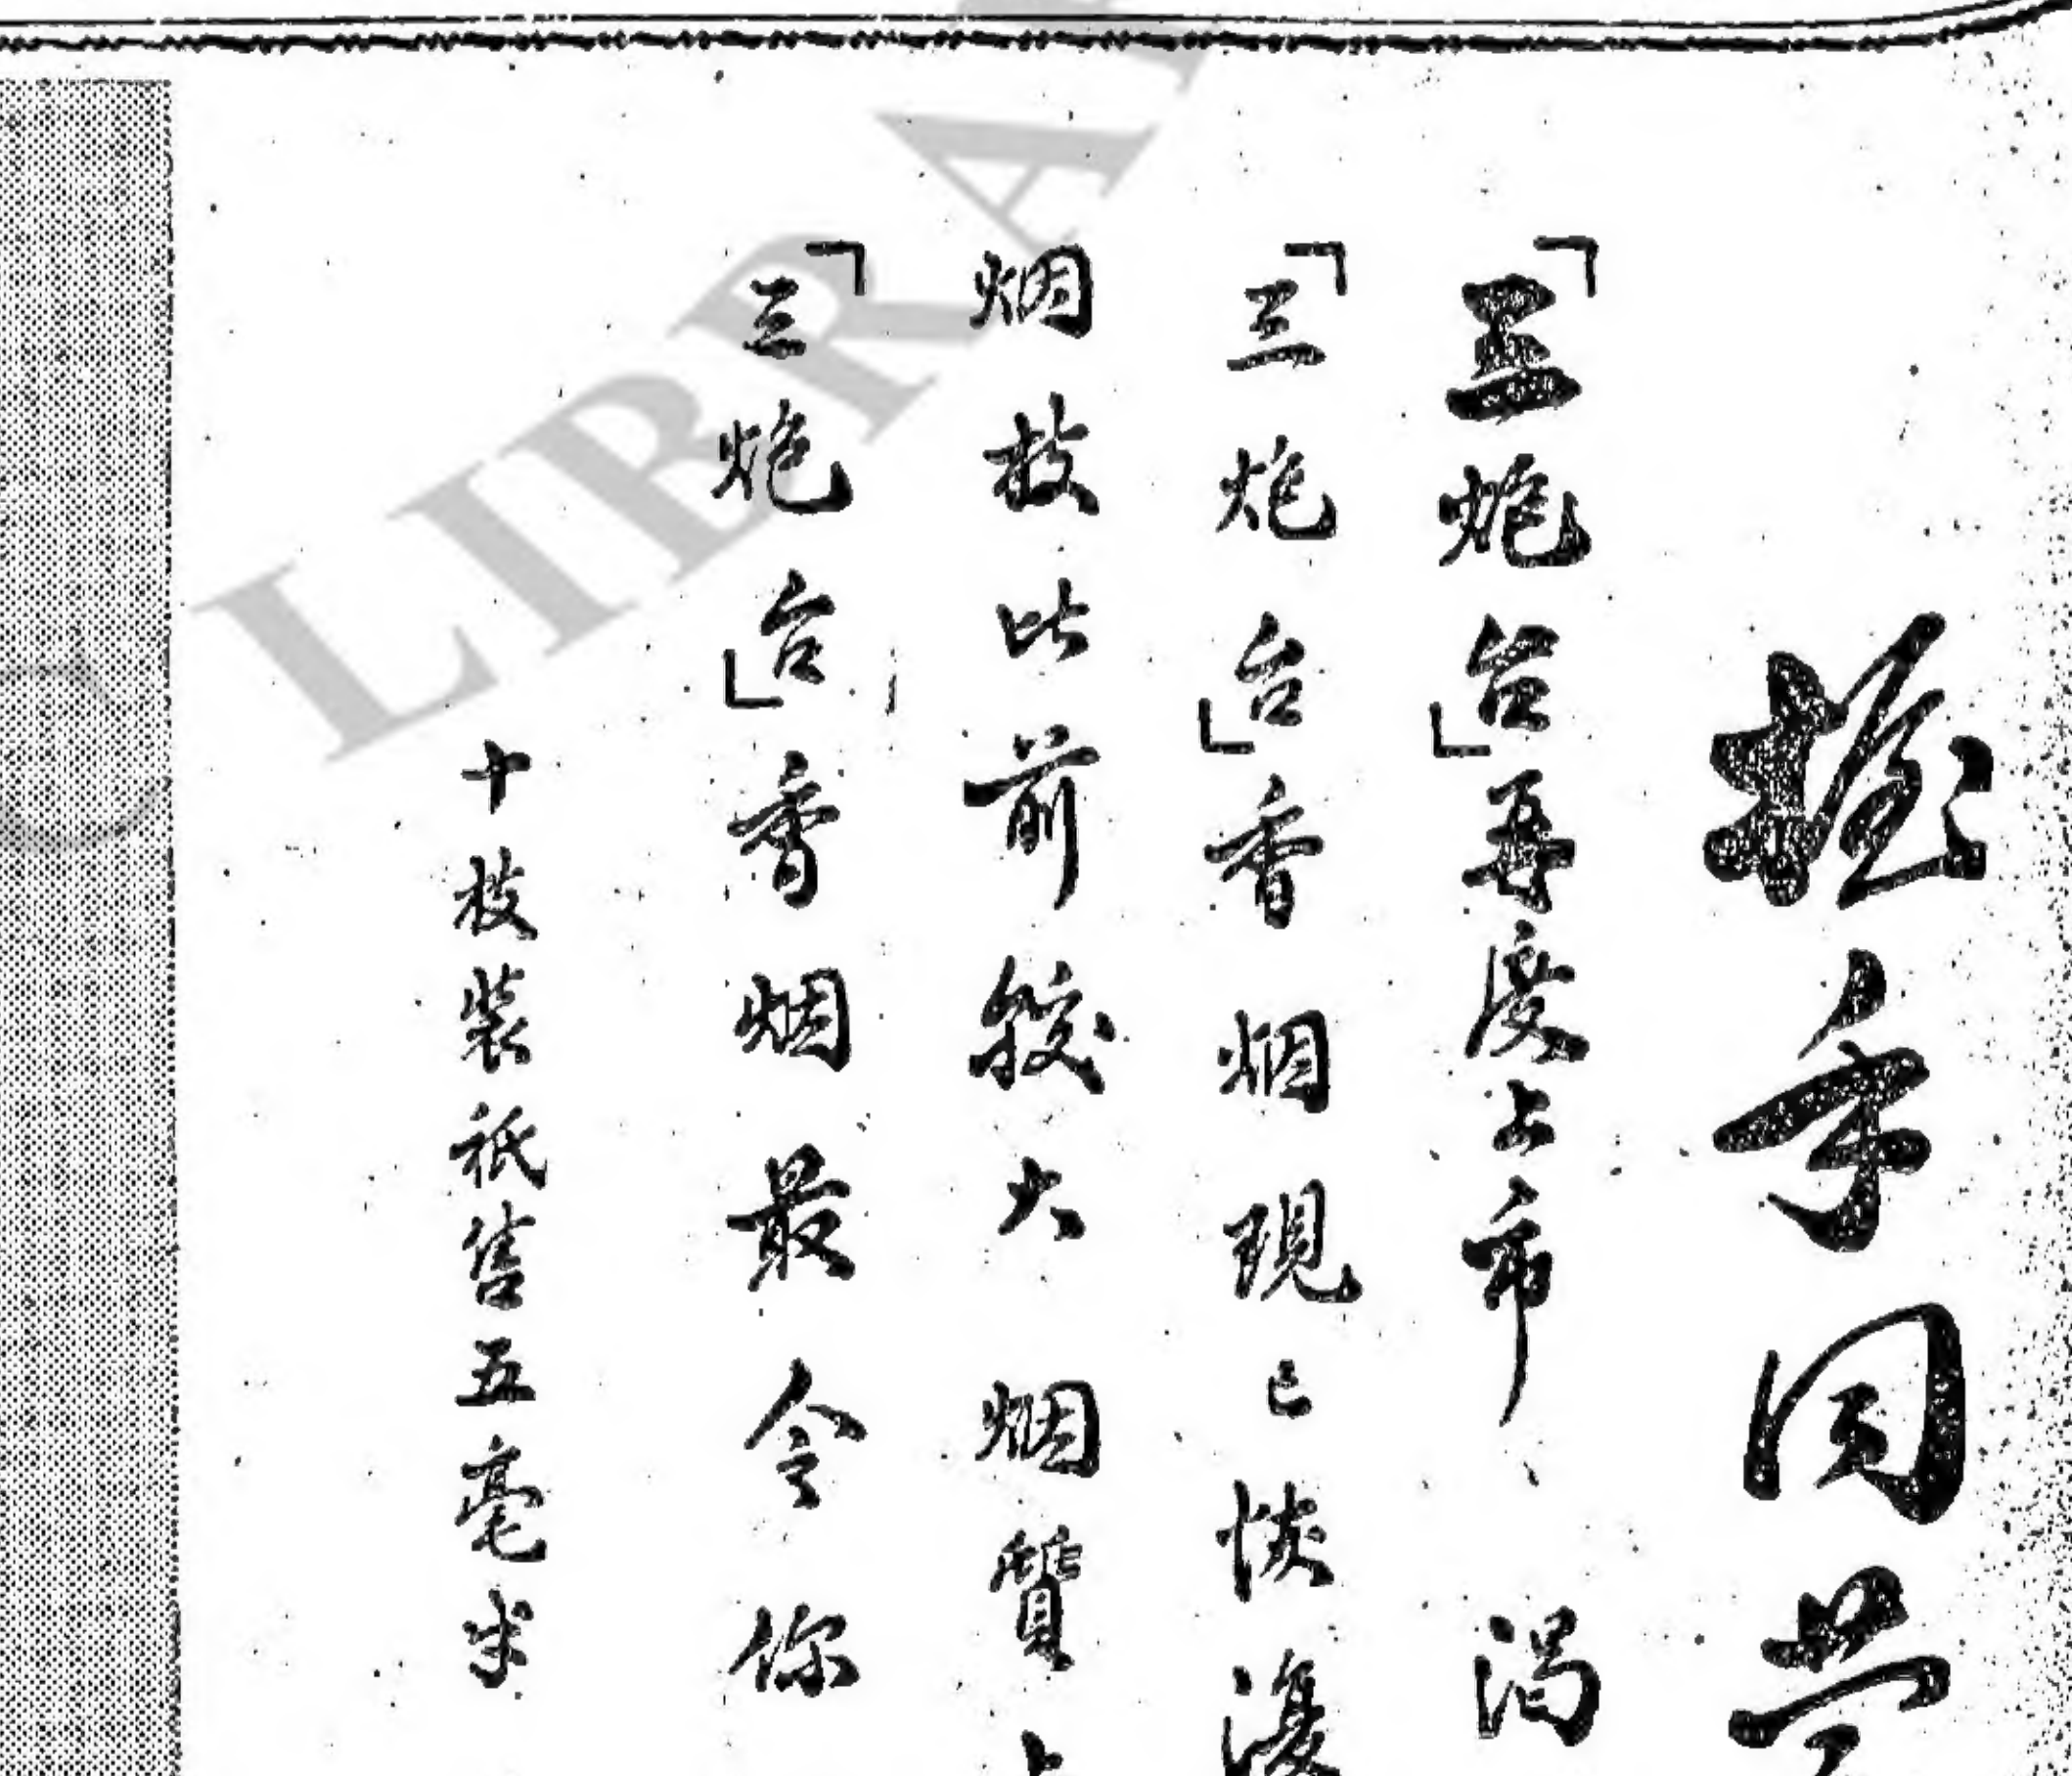 握手同
「三炮台」再度上市 渴
「三炮台」香烟現已恢復
烟枝比前較大 烟質
「三炮台」香烟最令你
十枝裝祇售五毫半
LIBRA